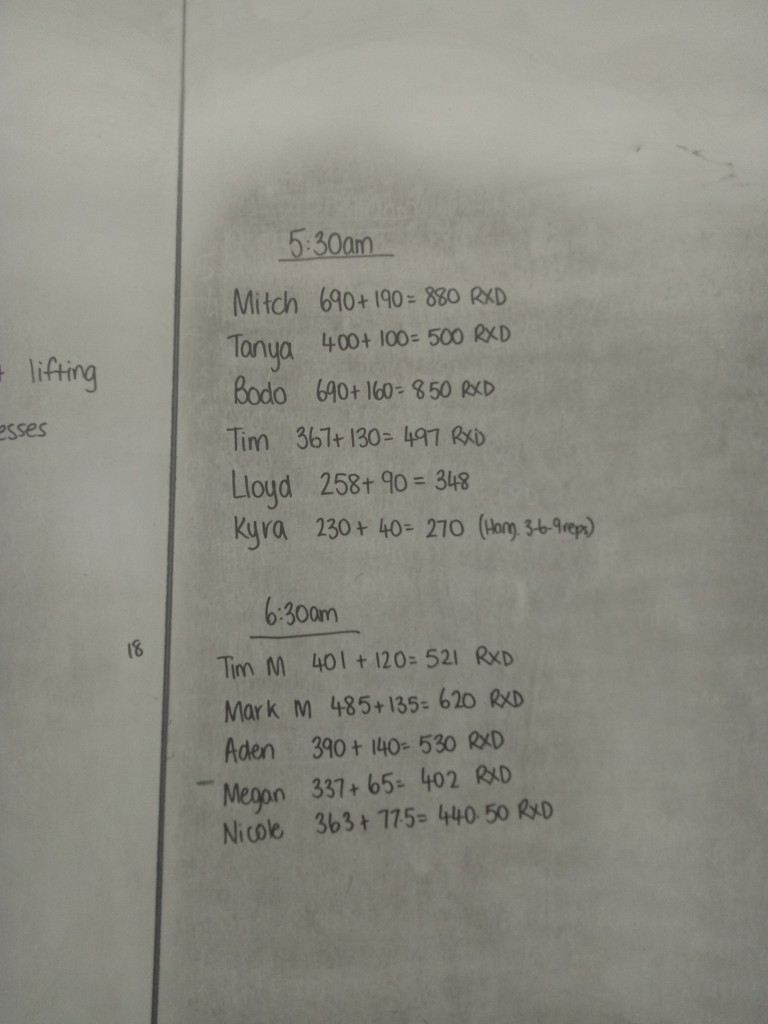 lifting
esses
18
5:30am
Mitch 690+190= 880 RXD
Tanya 400+ 100= 500 RXD
Bodo 690+160= 850 RXD
Tim 367+130= 497 RXD
Lloyd 258+ 90 = 348
Kyra 230 + 40= 270 (Hang. 3-6-9 reps)
6:30am
Tim M 401 + 120= 521 RXD
Mark M 485+135= 620 RXD
Aden 390+ 140= 530 RXD
- Megan 337+ 65= 402 RXD
Nicole 363+ 77.5= 440.50 RXD